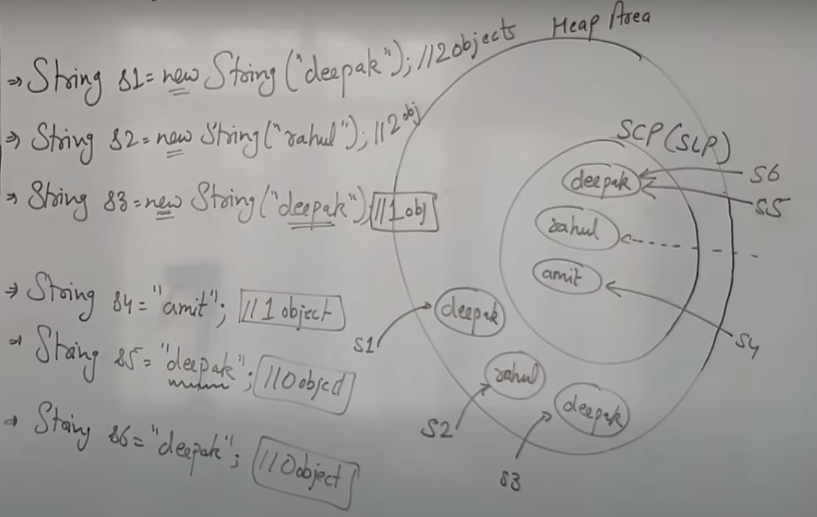 ⇒ String s1 = new String("deepak"); //2 objects
⇒ String s2 = new String("rahul"); //2 obj
⇒ String s3 = new String("deepak") //1 obj
⇒ String s4 = "amit"; //1 object
⇒ String s5 = "deepak"; //0 object
⇒ String s6 = "deepak"; //0 object
Heap Area
SCP (SLP)
deepak
s6
s5
rahul
amit
s4
deepak
s1
rahul
s2
deepak
s3